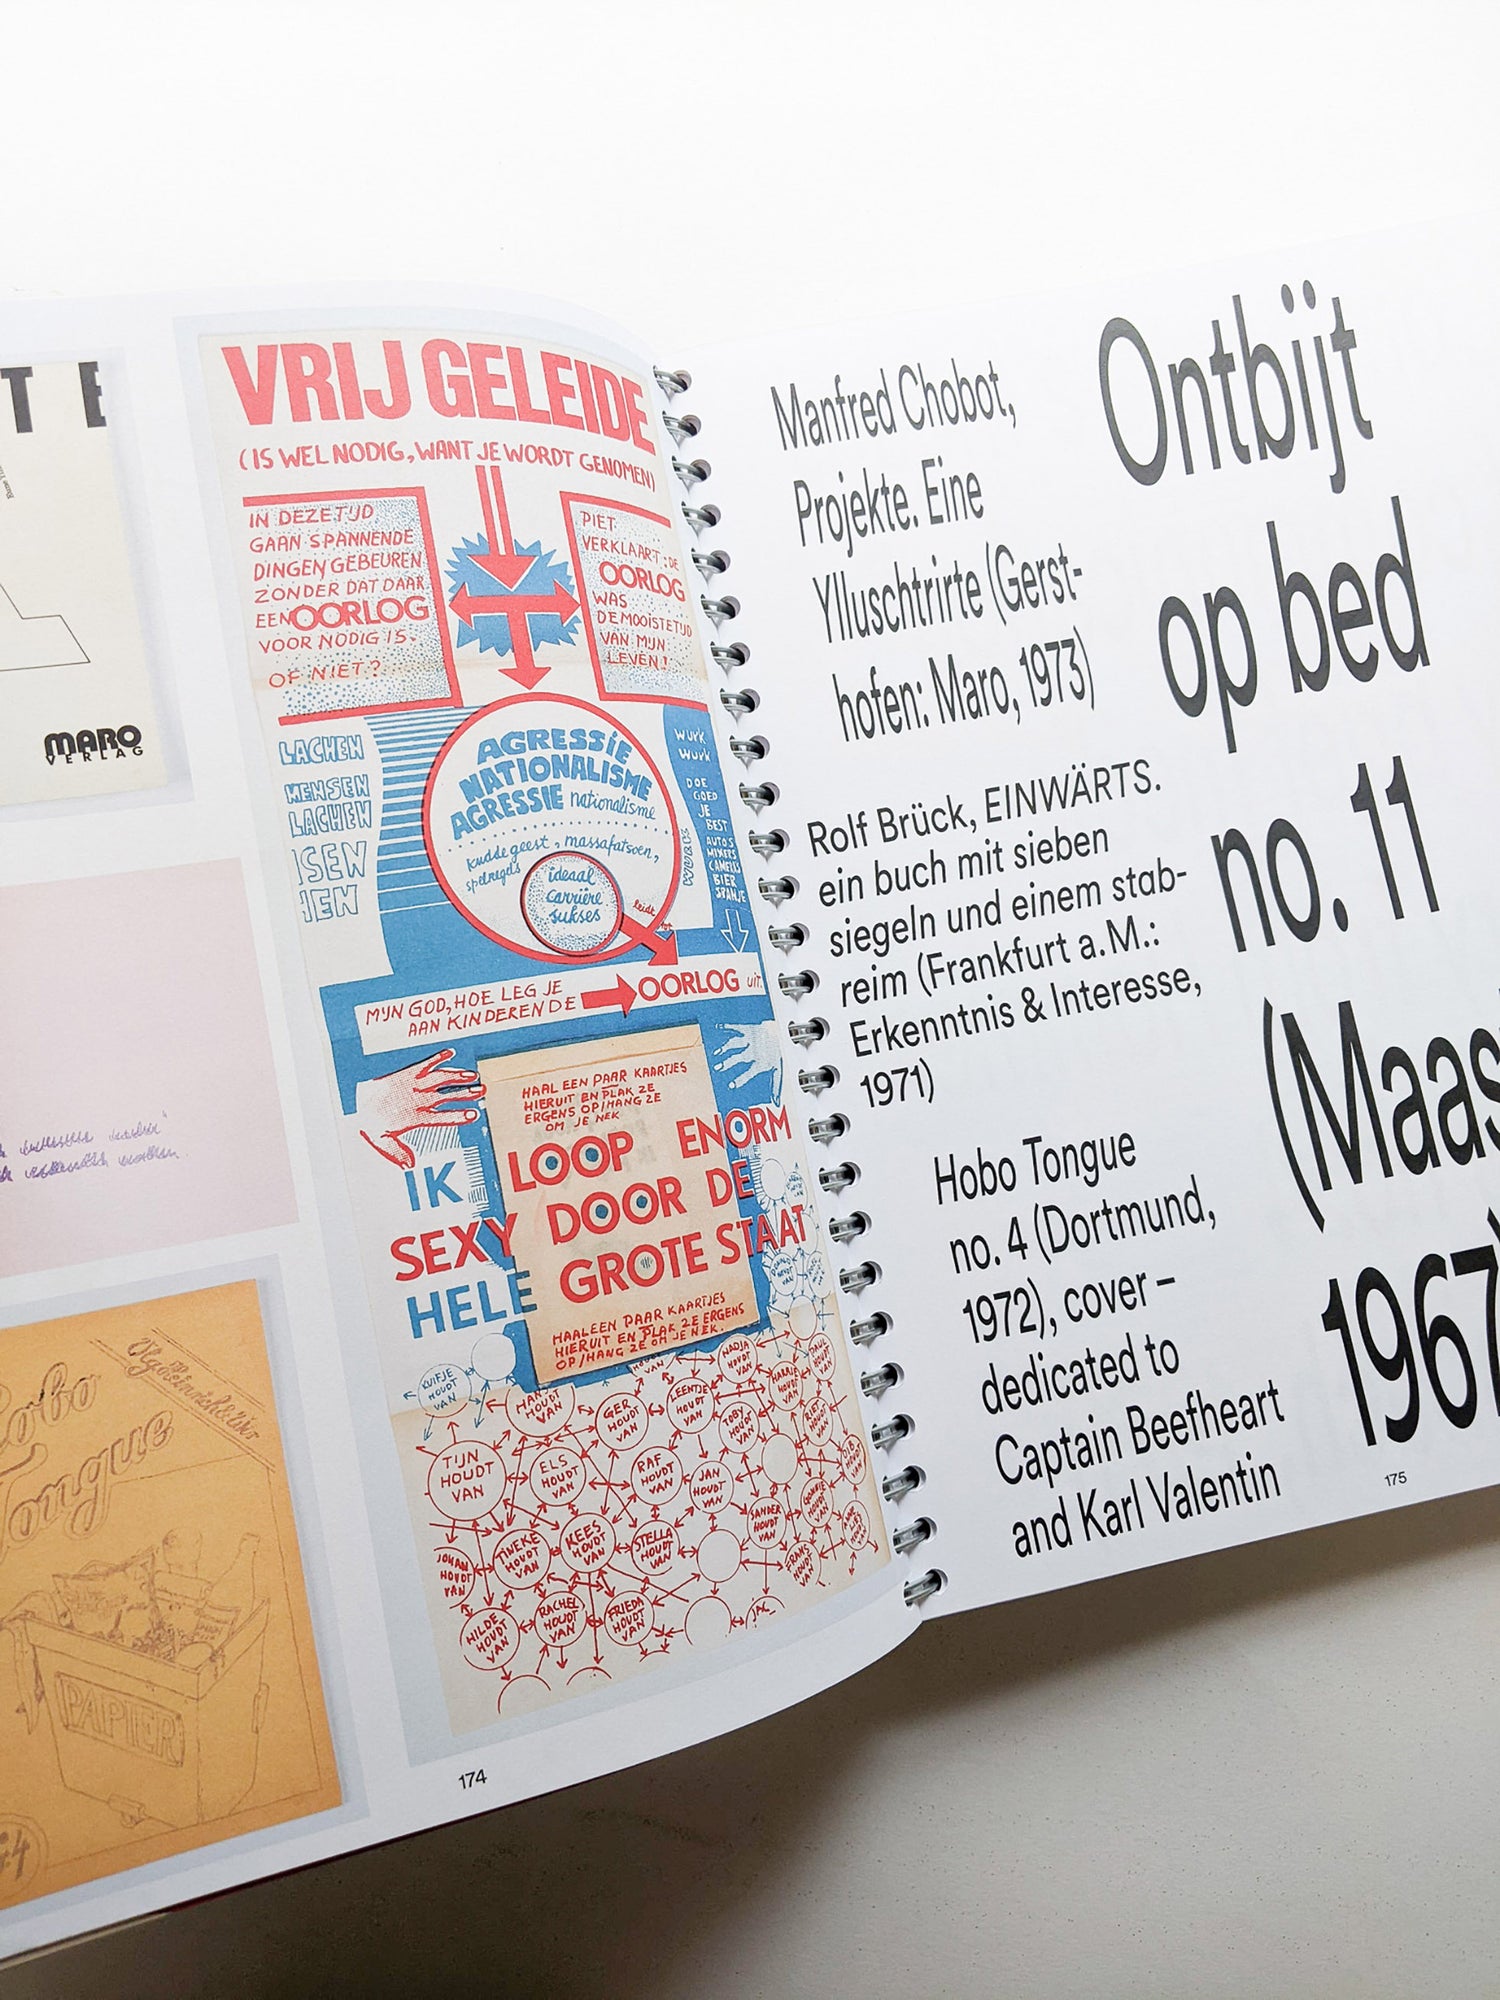 T E
MARO
VERLAG
Hobo
Tongue
PAPIER
VRIJ GELEIDE
(IS WEL NODIG, WANT JE WORDT GENOMEN)
IN DEZE TIJD
GAAN SPANNENDE
DINGEN GEBEUREN
ZONDER DAT DAAR
EEN OORLOG
VOOR NODIG IS.
OF NIET?
PIET
VERKLAART: DE
OORLOG
WAS
DE MOOISTE TIJD
VAN MIJN
LEVEN!
LACHEN
MENSEN
LACHEN
AGRESSIE
NATIONALISME
AGRESSIE nationalisme
kudde geest, massafatsoen,
spelregels
ideaal
carrière
sukses
leidt tot
WURK
WURK
DOE
GOED
JE
BEST
AUTO'S
MIXERS
CAMELS
BIER
SPANJE
MIJN GOD, HOE LEG JE
AAN KINDEREN DE
OORLOG uit.
HAAL EEN PAAR KAARTJES
HIERUIT EN PLAK ZE
ERGENS OP/HANG ZE
OM JE NEK
IK LOOP ENORM
SEXY DOOR DE
HELE GROTE STAAT
HAAL EEN PAAR KAARTJES
HIERUIT EN PLAK ZE ERGENS
OP/HANG ZE OM JE NEK.
KUIFJE HOUDT VAN
HOUDT VAN
NADJA HOUDT VAN
PAUL HOUDT VAN
HARRIE HOUDT VAN
LEENTJE HOUDT VAN
GER HOUDT VAN
TOBY HOUDT VAN
RIET HOUDT VAN
TIJN HOUDT VAN
ELS HOUDT VAN
RAF HOUDT VAN
JAN HOUDT VAN
SANDER HOUDT VAN
JOHAN HOUDT VAN
TINEKE HOUDT VAN
KEES HOUDT VAN
STELLA HOUDT VAN
FRANS HOUDT VAN
HILDE HOUDT VAN
RACHEL HOUDT VAN
FRIEDA HOUDT VAN
174
Manfred Chobot,
Projekte. Eine
Ylluschtrirte (Gerst-
hofen: Maro, 1973)
Rolf Brück, EINWÄRTS.
ein buch mit sieben
siegeln und einem stab-
reim (Frankfurt a.M.:
Erkenntnis & Interesse,
1971)
Hobo Tongue
no. 4 (Dortmund,
1972), cover –
dedicated to
Captain Beefheart
and Karl Valentin
Ontbijt
op bed
no. 11
(Maas
1967)
175